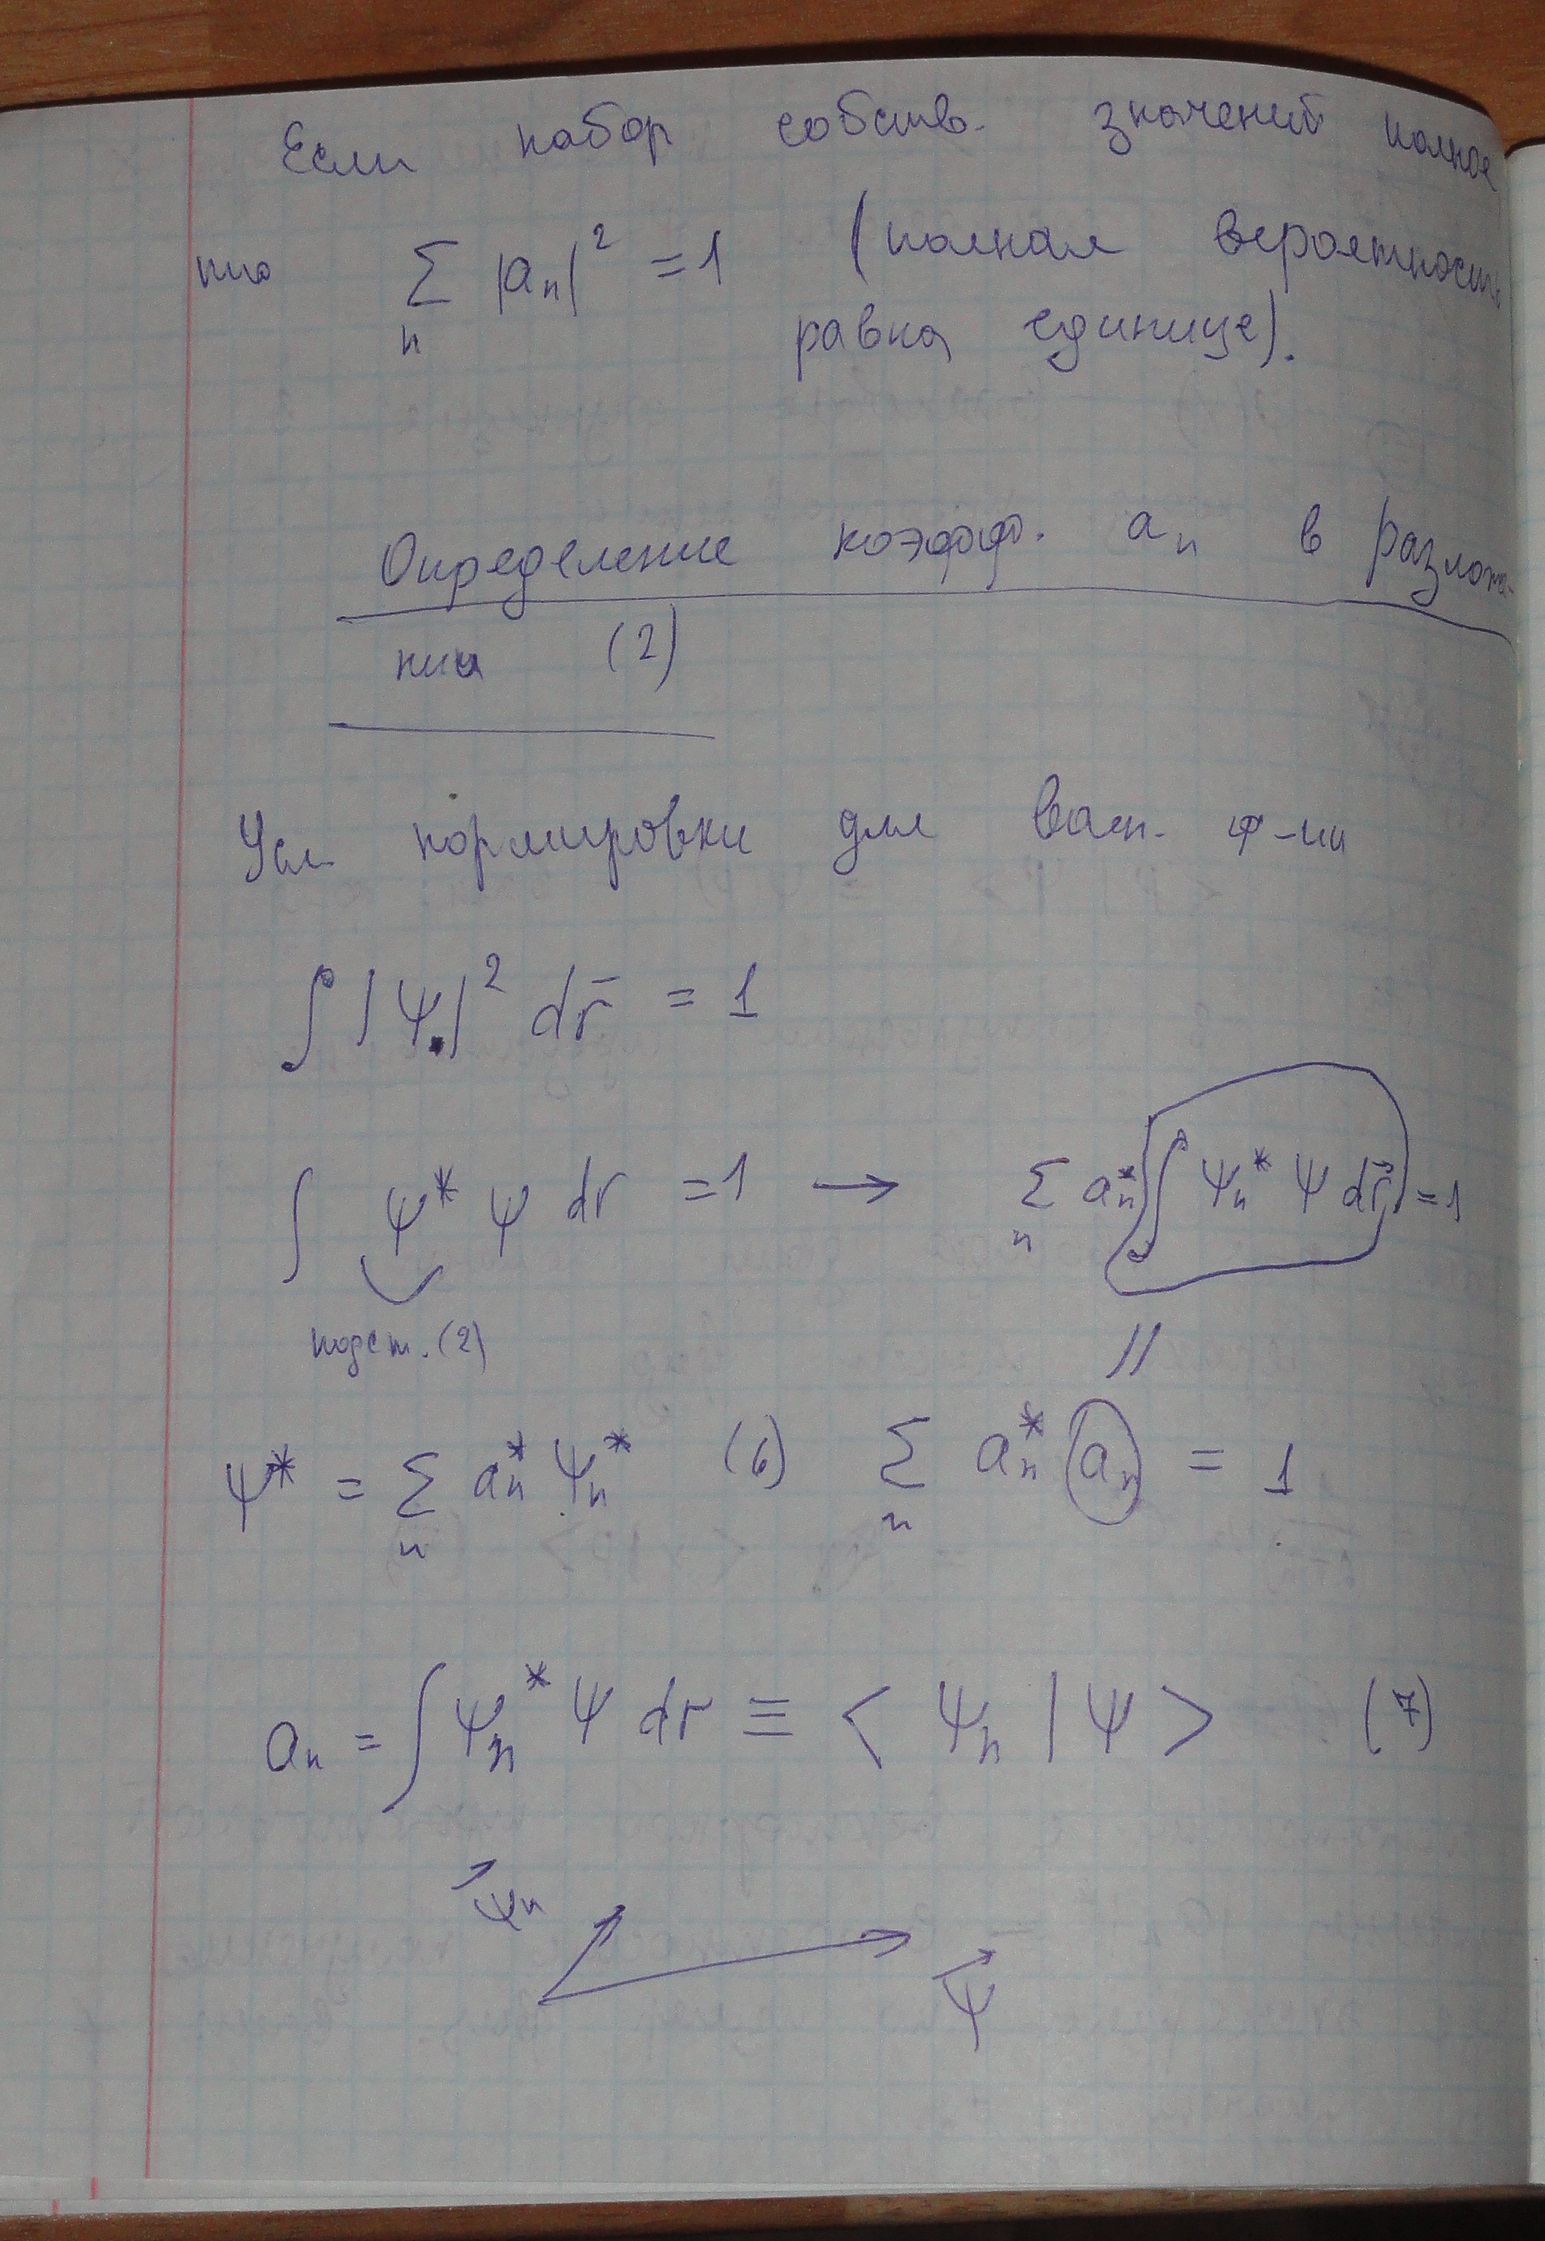 Если набор собств. значений полное
то ∑ₙ |aₙ|² = 1 (полная вероятность
равна единице).
Определение коэфф. aₙ в разложе-
нии (2)
Усл нормировки для волн. ф-ии
∫ |Ψ|² dr̄ = 1
∫ Ψ* Ψ dr = 1 → ∑ₙ aₙ* ∫ Ψₙ* Ψ dr⃗ = 1
подст. (2)
//
Ψ* = ∑ₙ aₙ* Ψₙ* (6) ∑ₙ aₙ* aₙ = 1
aₙ = ∫ Ψₙ* Ψ dr ≡ < Ψₙ | Ψ > (7)
Ψ⃗ₙ
Ψ⃗